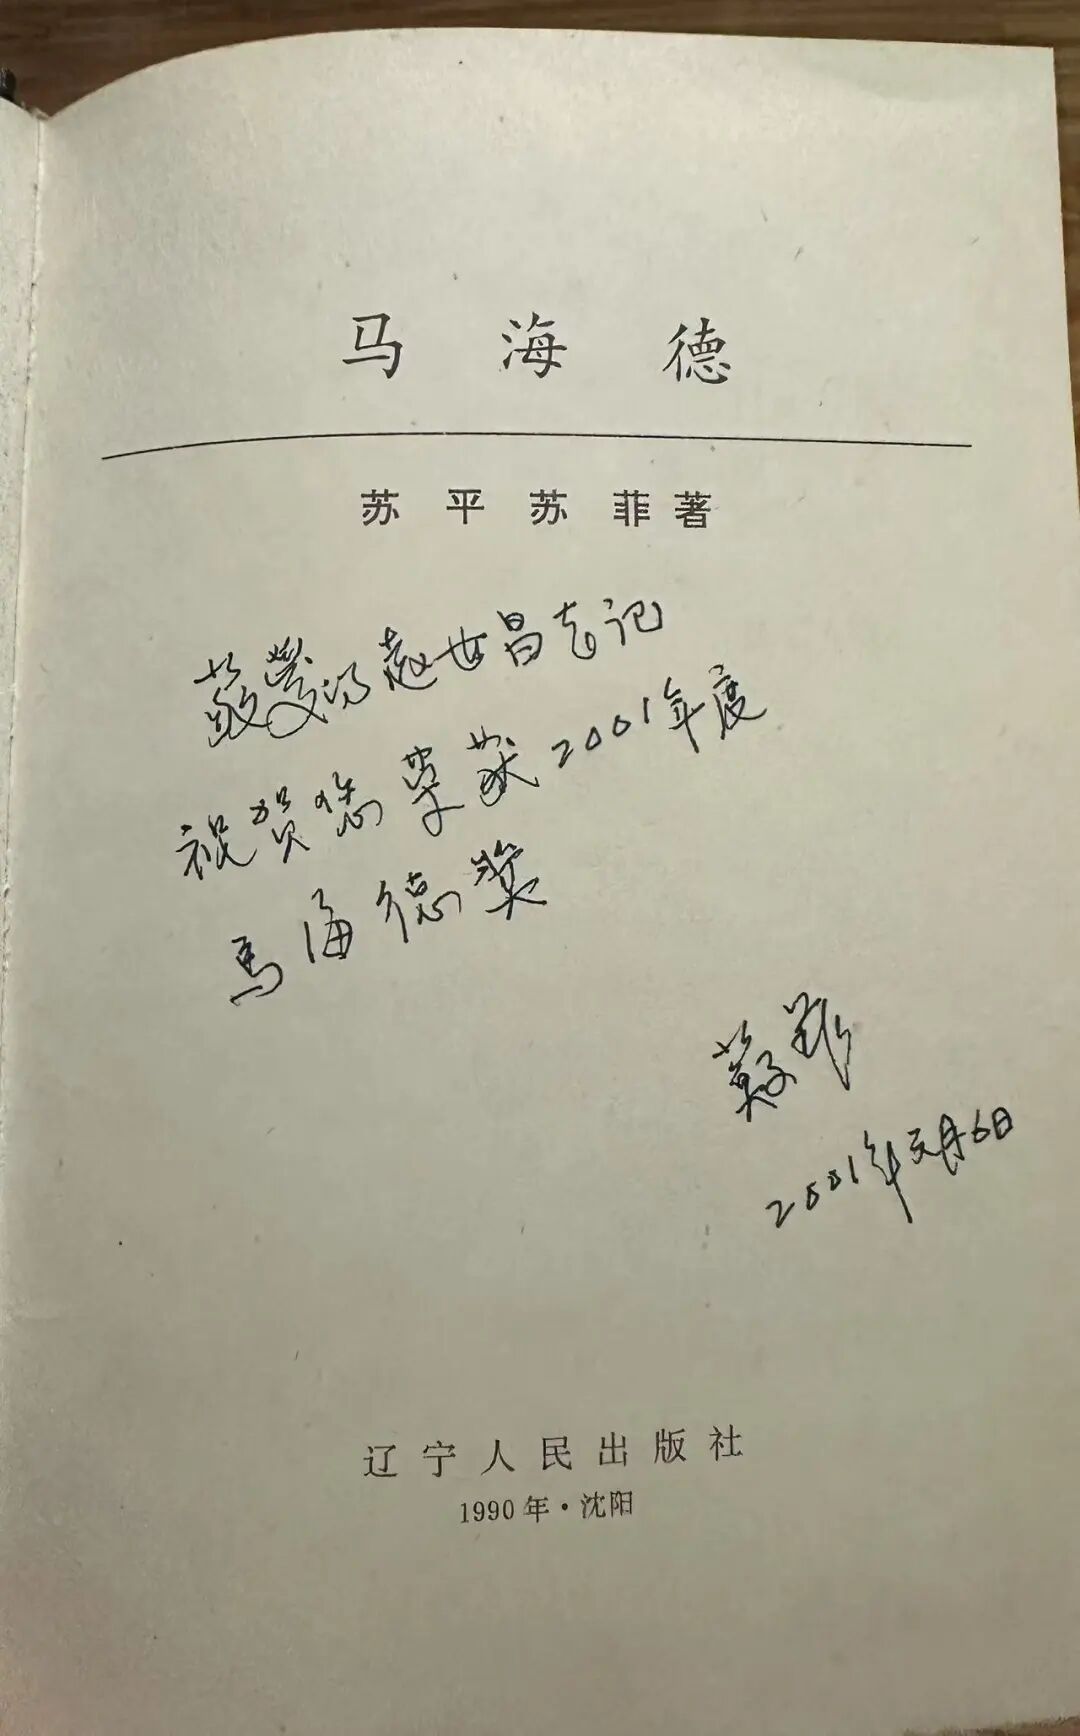 马海德
苏平苏菲著
敬爱的赵世昌书记
祝贺您荣获2001年度
马海德奖
苏菲
2001年 月6日
辽宁人民出版社
1990年·沈阳